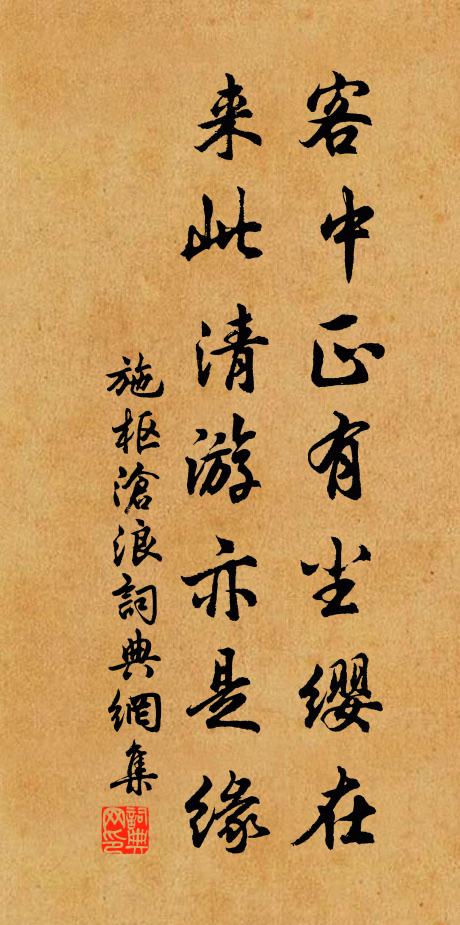 客中正有尘缨在
来此清游亦是缘
施枢滄浪詞典網集
詞典网印